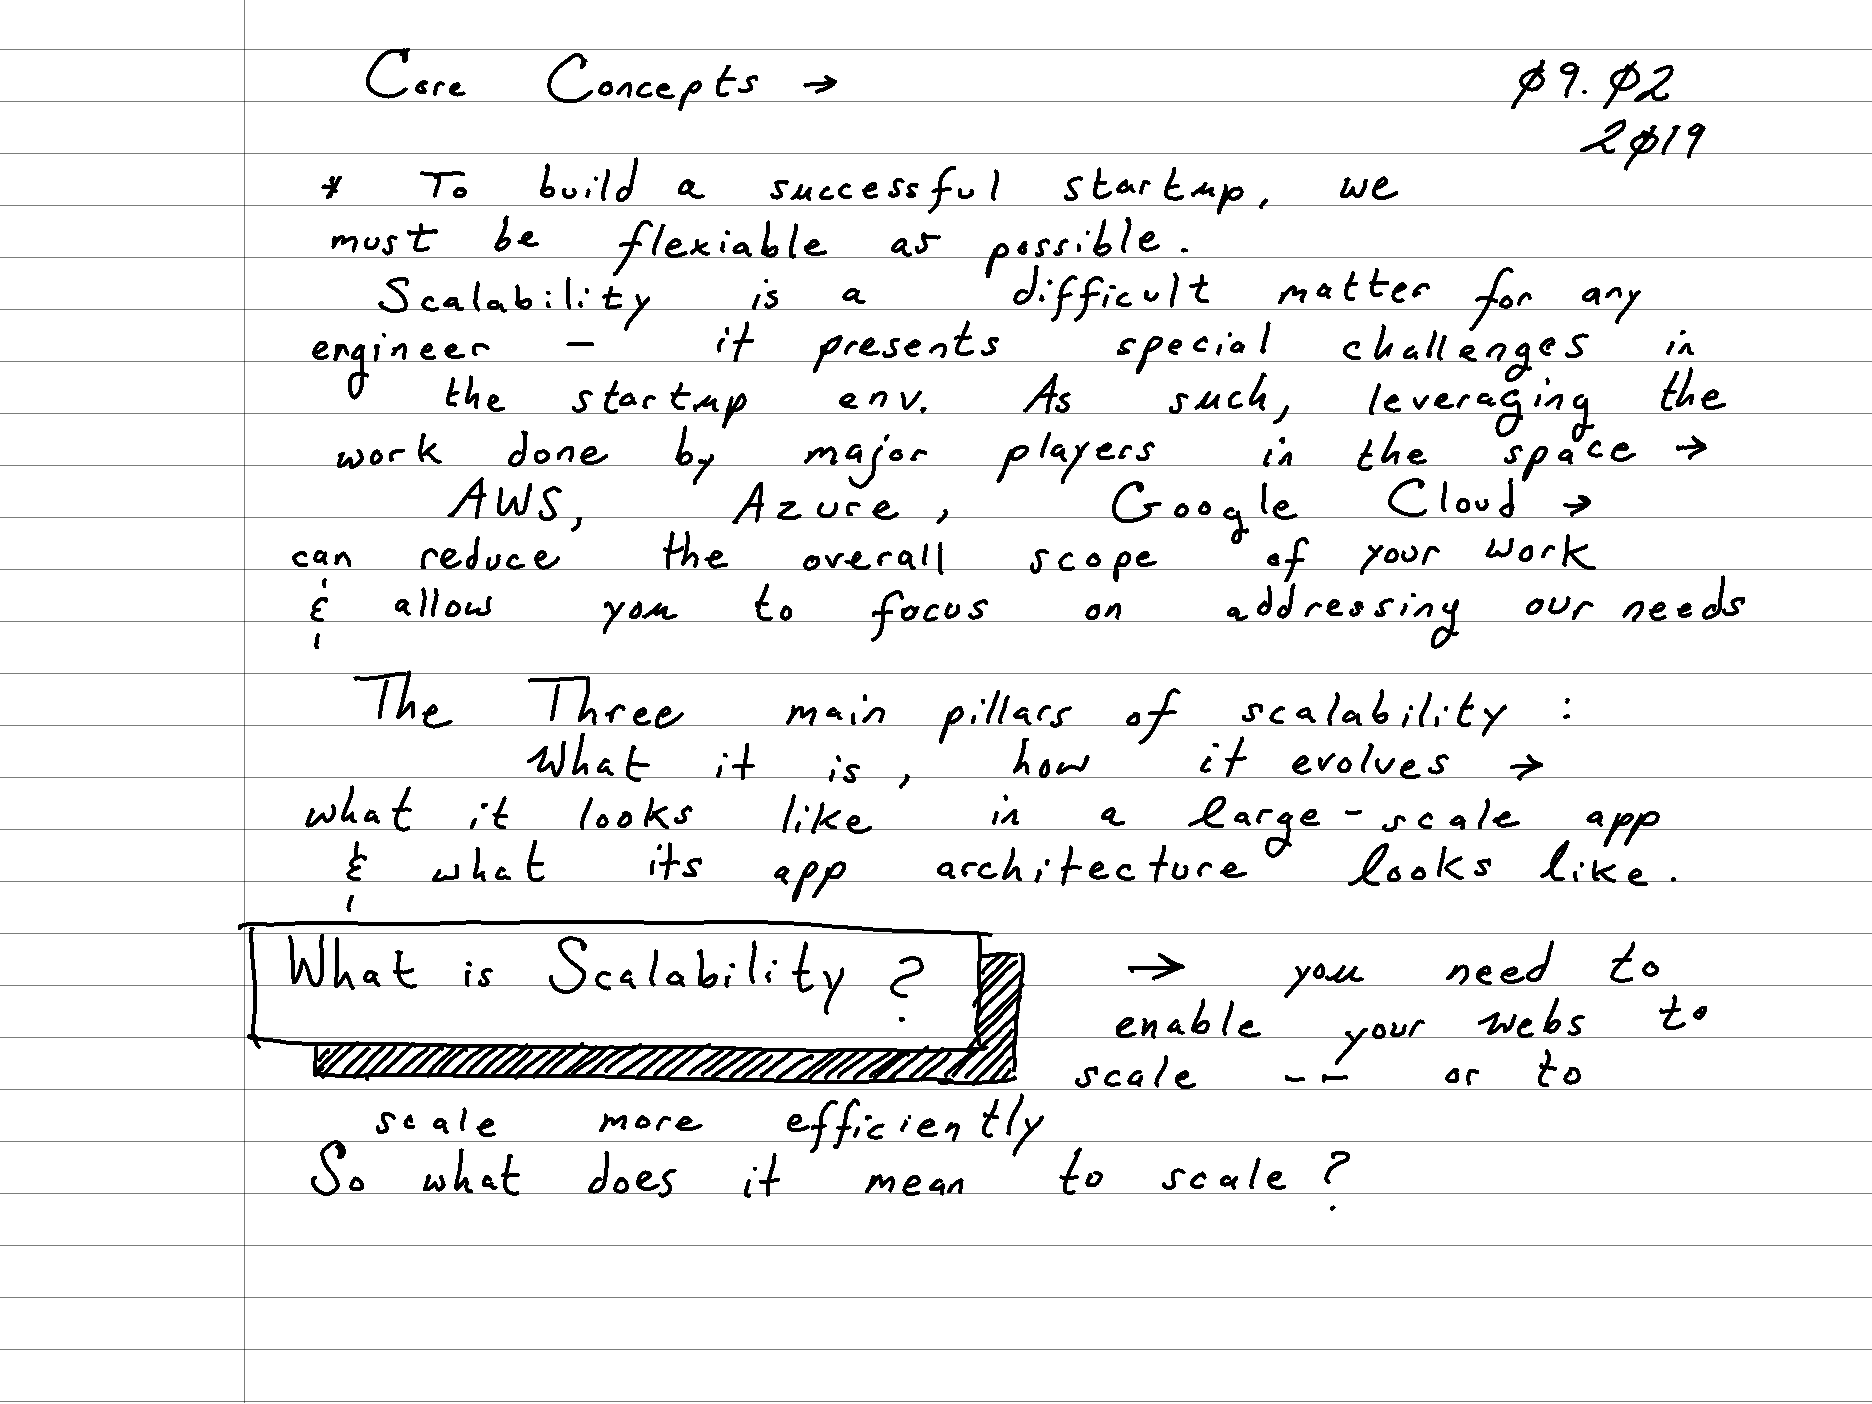 Core Concepts → Ø9. Ø2
2Ø19
* To build a successful startup, we
must be flexiable as possible.
Scalability is a difficult matter for any
engineer – it presents special challenges in
the startup env. As such, leveraging the
work done by major players in the space →
AWS, Azure, Google Cloud →
can reduce the overall scope of your work
& allow you to focus on addressing our needs
The Three main pillars of scalability :
What it is, how it evolves →
what it looks like in a large-scale app
& what its app architecture looks like.
What is Scalability ? → you need to
enable your webs to
scale -- or to
scale more efficiently
So what does it mean to scale ?